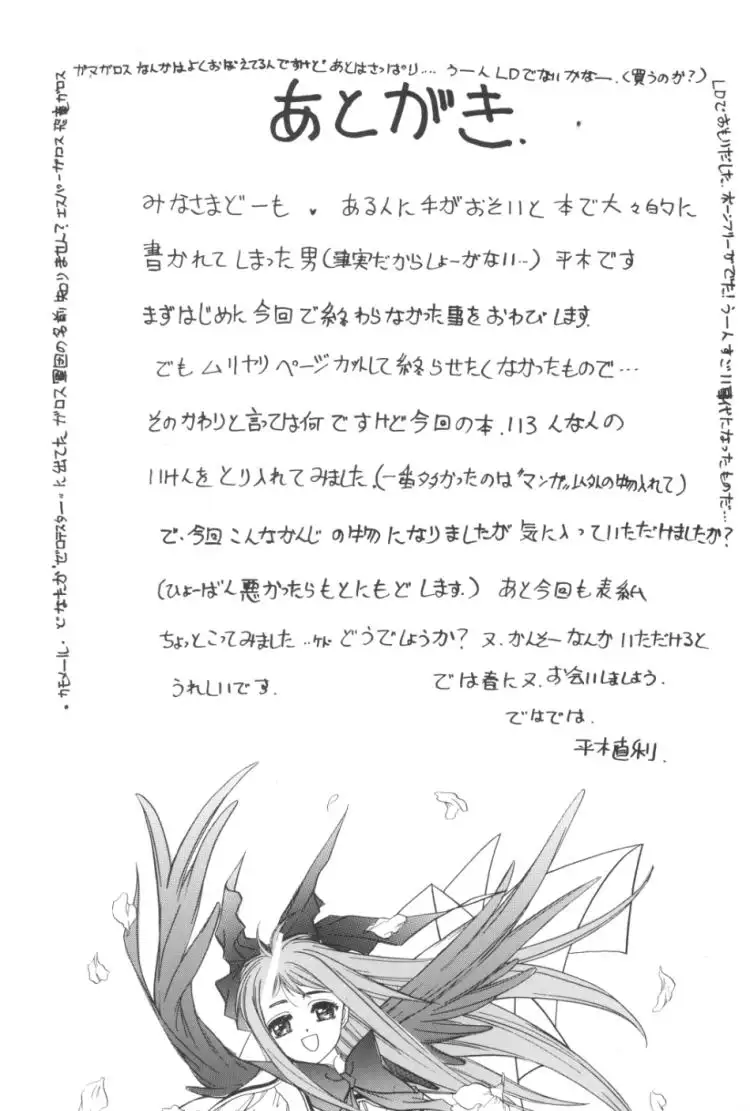 ガマガロス なんかはよくおぼえてるんですけど あとはさっぱり…. うーん LDでないかなー.(買うのか?)
あとがき.
みなさまどーも 、 ある人に手がおそいと 本で大々的に
書かれてしまった男(事実だからしょーがない…) 平木です
まずはじめに今回で終わらなかった事をおわびします.
でもムリヤリページカットして終らせたくなかったもので…
そのかわりと言っては何ですけど今回の本.113人なんの
いけんをとり入れてみました.(一番多かったのは“マンガ〟以外の物入れて)
で.今回こんなかんじの物になりましたが気に入っていただけましたか?
(ひょーばん悪かったらもとにもどします.) あと今回も表紙
ちょっとこってみました…ケド どうでしょうか? 又.かんそーなんかいただけると
うれしいです. では春に又.お会いしましよう.
ではでは.
平木直利.
LDでおもいだした.ボーンフリーがでた!うーんすごい時代になったものだ…
・カモメール.どなたか“ゼロテスター〟に出てた.ガロス軍団の名前知りません?エスパーガロス恐竜ガロス